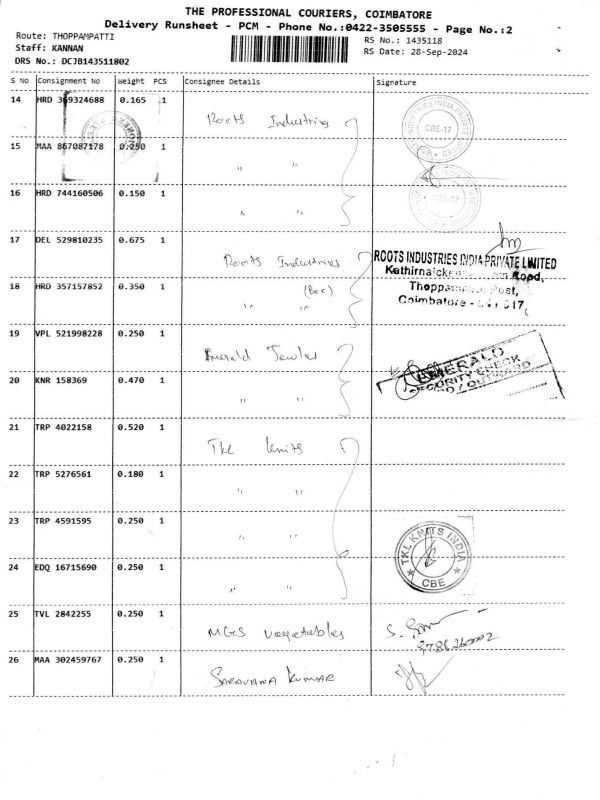 THE PROFESSIONAL COURIERS, COIMBATORE
Delivery Runsheet - PCM - Phone No.:0422-3505555 - Page No.:2
Route: THOPPAMPATTI
RS No.: 1435118
Staff: KANNAN
RS Date: 28-Sep-2024
DRS No.: DCJB143511802
S No Consignment No Weight PCS Consignee Details Signature
14 HRD 369324688 0.165 1 Roots Industries
CBE-17
15 MAA 867087178 0.250 1 " "
16 HRD 744160506 0.150 1 " "
CBE-17
17 DEL 529810235 0.675 1 Roots Industries
ROOTS INDUSTRIES INDIA PRIVATE LIMITED
Road,
18 HRD 357157852 0.350 1 " (Box) "
Post,
Coimbatore - 641 017.
19 VPL 521998228 0.250 1 Emerald Jewles
EMERALD
SECURITY CHECK
OUTWARD
20 KNR 158369 0.470 1 " "
21 TRP 4022158 0.520 1 TKL knits
22 TRP 5276561 0.180 1 " "
23 TRP 4591595 0.250 1 " "
TKL KNITS INDIA
CBE
24 EDQ 16715690 0.250 1 " "
25 TVL 2842255 0.250 1 MGS vegetables
26 MAA 302459767 0.250 1 SARAVANA KUMAR